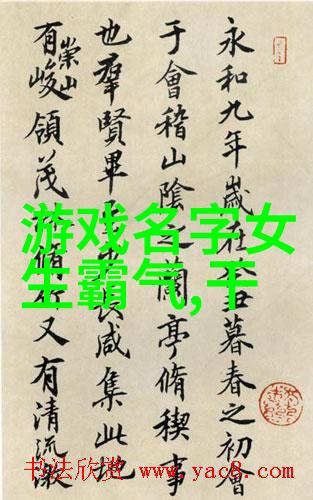 永和九年歲在丑暮春之初會
于會稽山陰之蘭亭脩稧事
也羣賢畢至少長咸集此地
有崇山峻領茂林脩竹又有清流激
游戏名字女
生霸气,干
书法欣赏 www.yac8.com